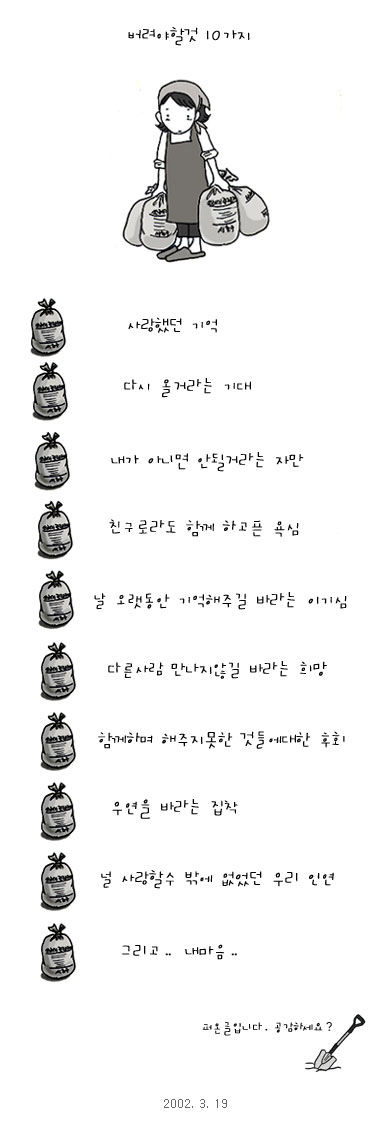 버려야할것 10가지
사랑했던 기억
다시 올거라는 기대
내가 아니면 안될거라는 자만
친구로라도 함께 하고픈 욕심
날 오랫동안 기억해주길 바라는 이기심
다른사람 만나지않길 바라는 희망
함께하며 해주지못한 것들에대한 후회
우연을 바라는 집착
널 사랑할수 밖에 없었던 우리 인연
그리고.. 내마음..
퍼온글입니다. 공감하세요?
2002. 3. 19